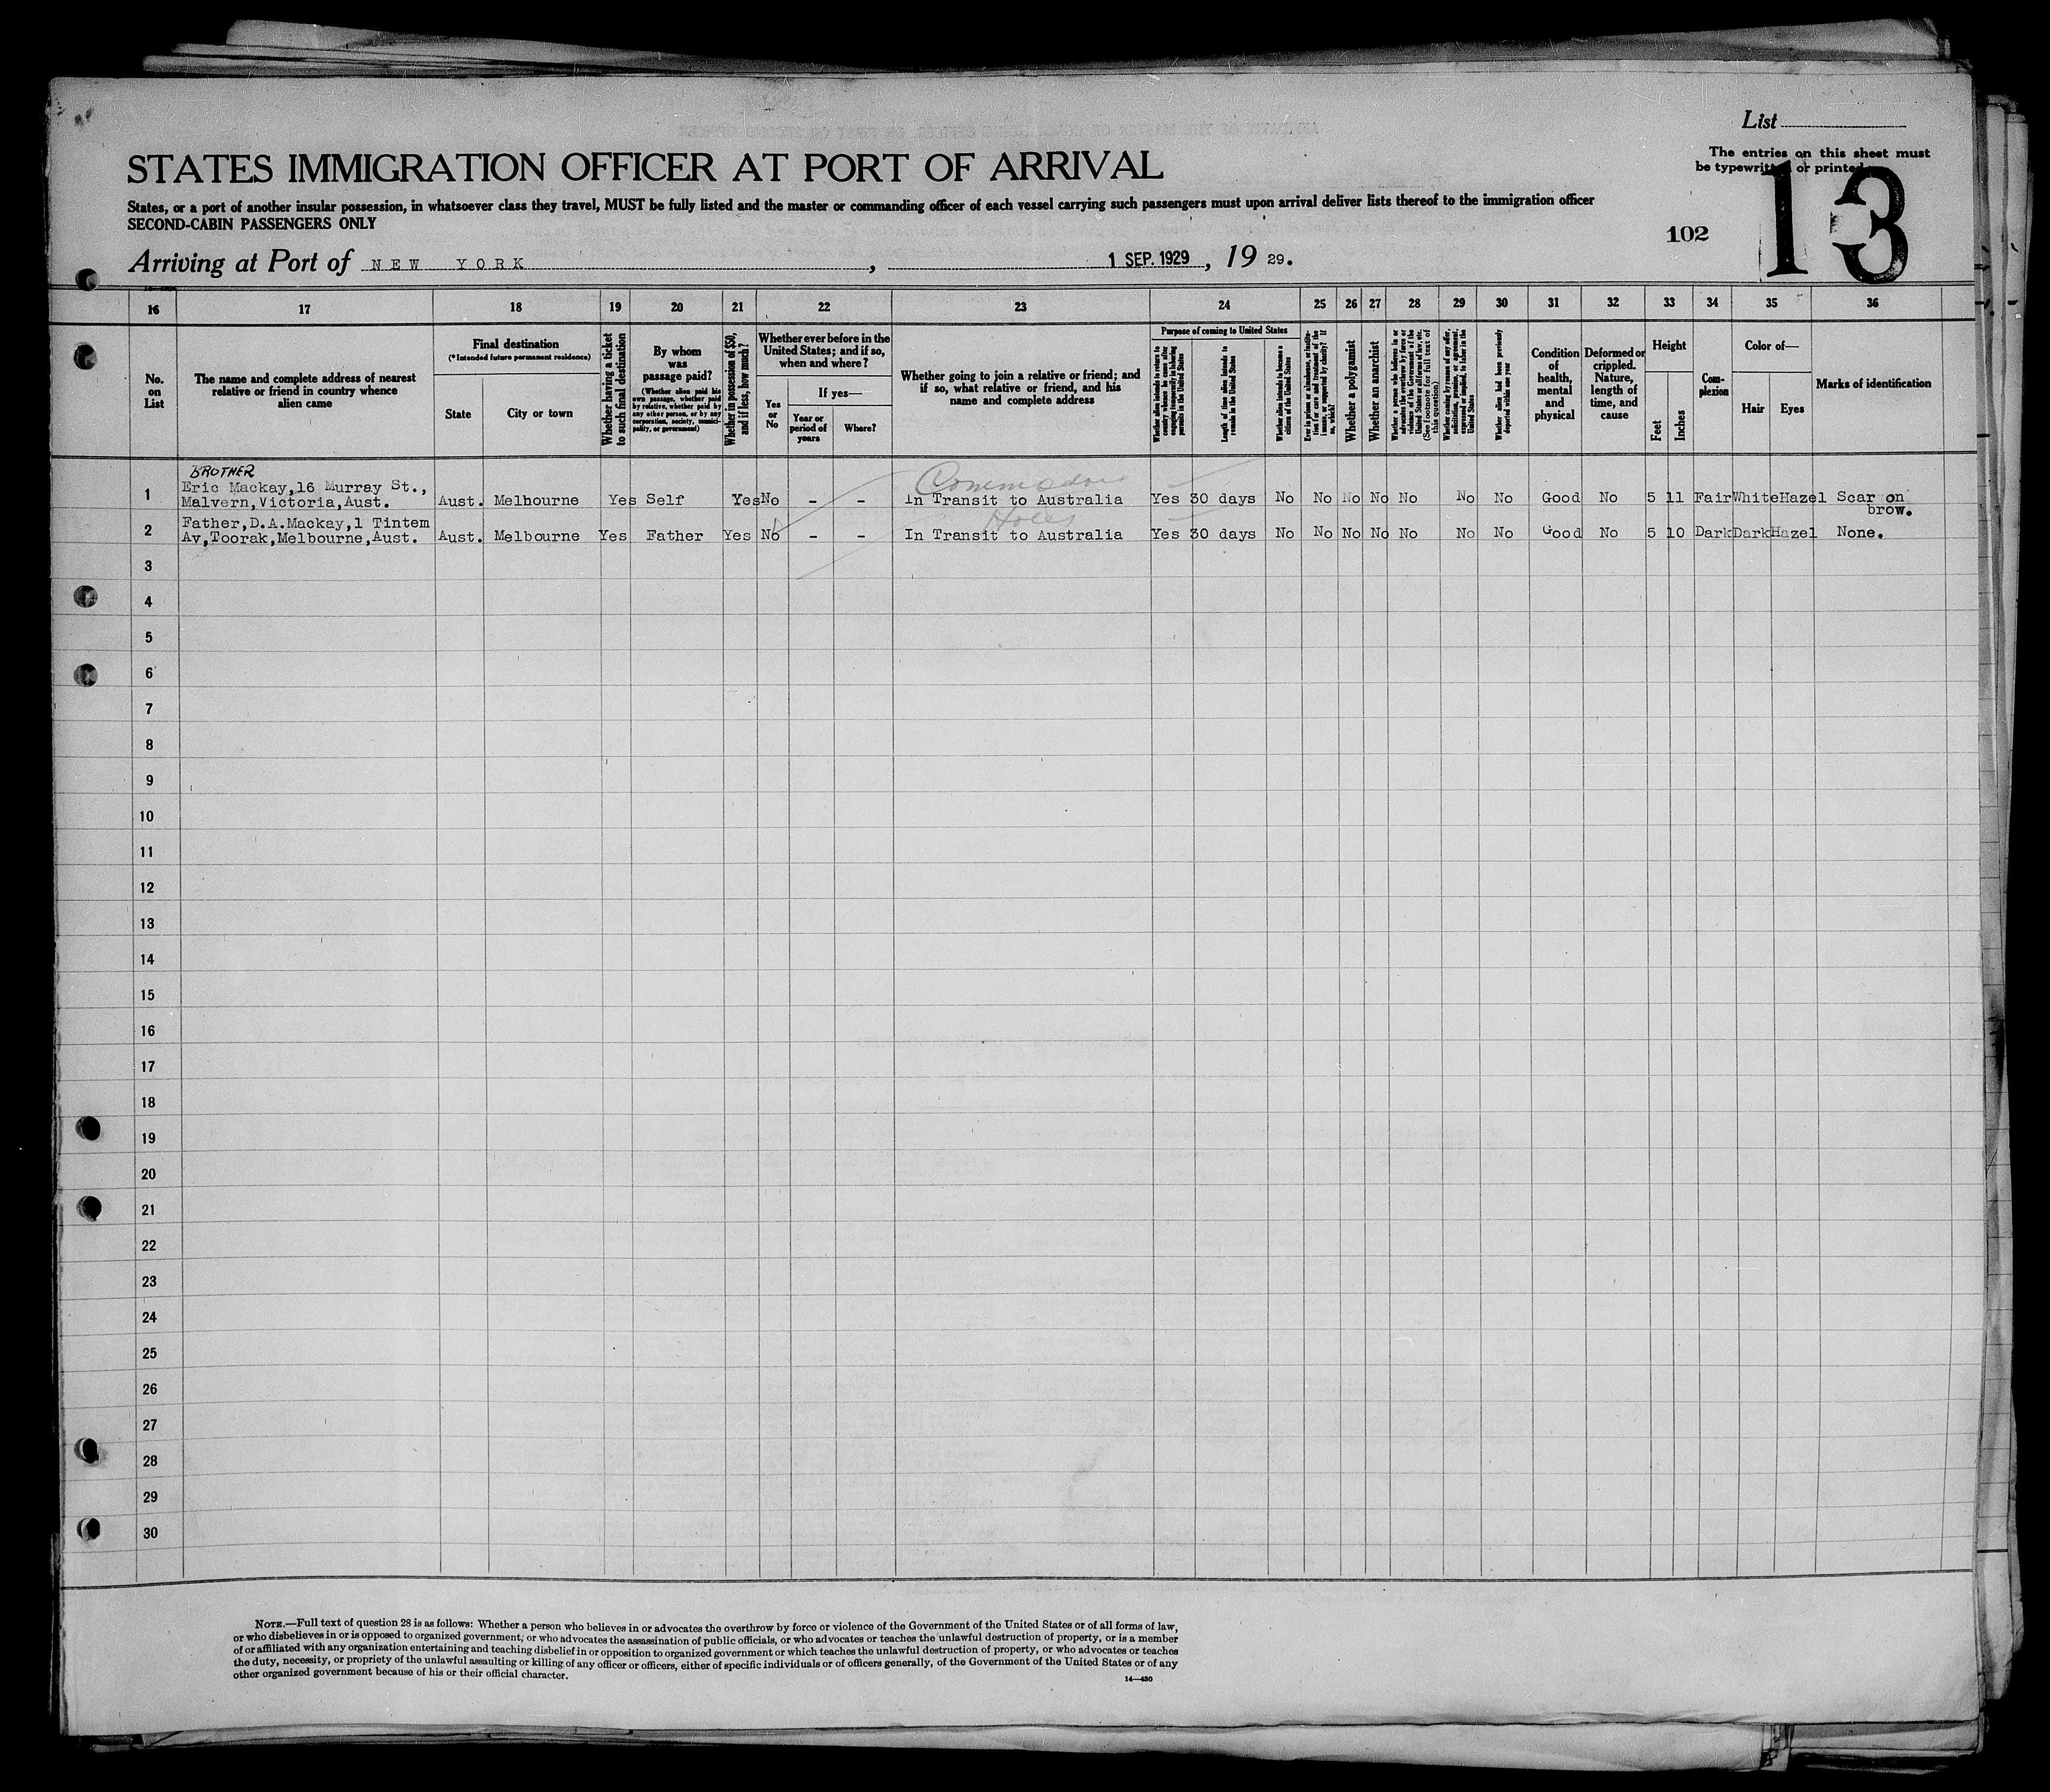 List
The entries on this sheet must
be typewritten or printed
13
STATES IMMIGRATION OFFICER AT PORT OF ARRIVAL
States, or a port of another insular possession, in whatsoever class they travel, MUST be fully listed and the master or commanding officer of each vessel carrying such passengers must upon arrival deliver lists thereof to the immigration officer
SECOND-CABIN PASSENGERS ONLY
102
Arriving at Port of NEW YORK, 1 SEP. 1929, 19 29.
16 17 18 19 20 21 22 23 24 25 26 27 28 29 30 31 32 33 34 35 36
No. on List
The name and complete address of nearest relative or friend in country whence alien came
Final destination
(*Intended future permanent residence)
State
City or town
Whether having a ticket to such final destination
By whom was passage paid?
(Whether alien paid his own passage, whether paid by relative, whether paid by any other person, or by any corporation, society, municipality, or government)
Whether in possession of $50, and if less, how much?
Whether ever before in the United States; and if so, when and where?
Yes or No
If yes—
Year or period of years
Where?
Whether going to join a relative or friend; and if so, what relative or friend, and his name and complete address
Purpose of coming to United States
Whether alien intends to return to country whence he came after engaging temporarily in laboring pursuits in the United States
Length of time alien intends to remain in the United States
Whether alien intends to become a citizen of the United States
Ever in prison or almshouse, or institution for care and treatment of the insane, or supported by charity? If so, which?
Whether a polygamist
Whether an anarchist
Whether a person who believes in or advocates the overthrow by force or violence of the Government of the United States or all forms of law, etc. (See footnote for full text of this question)
Whether coming by reason of any offer, solicitation, promise, or agreement, expressed or implied, to labor in the United States
Whether alien had been previously deported within one year
Condition of health, mental and physical
Deformed or crippled. Nature, length of time, and cause
Height
Feet
Inches
Complexion
Color of—
Hair
Eyes
Marks of identification
BROTHER
Commodore
1 Eric Mackay,16 Murray St.,
Malvern,Victoria,Aust. Aust. Melbourne Yes Self Yes No - - In Transit to Australia Yes 30 days No No No No No No No Good No 5 11 Fair White Hazel Scar on
brow.
Hotes
2 Father,D.A.Mackay,1 Tintem
Av,Toorak,Melbourne,Aust. Aust. Melbourne Yes Father Yes No - - In Transit to Australia Yes 30 days No No No No No No No Good No 5 10 Dark Dark Hazel None.
3
4
5
6
7
8
9
10
11
12
13
14
15
16
17
18
19
20
21
22
23
24
25
26
27
28
29
30
NOTE.—Full text of question 28 is as follows: Whether a person who believes in or advocates the overthrow by force or violence of the Government of the United States or of all forms of law,
or who disbelieves in or is opposed to organized government, or who advocates the assassination of public officials, or who advocates or teaches the unlawful destruction of property, or is a member
of or affiliated with any organization entertaining and teaching disbelief in or opposition to organized government or which teaches the unlawful destruction of property, or who advocates or teaches
the duty, necessity, or propriety of the unlawful assaulting or killing of any officer or officers, either of specific individuals or of officers generally, of the Government of the United States or of any
other organized government because of his or their official character.
14—430